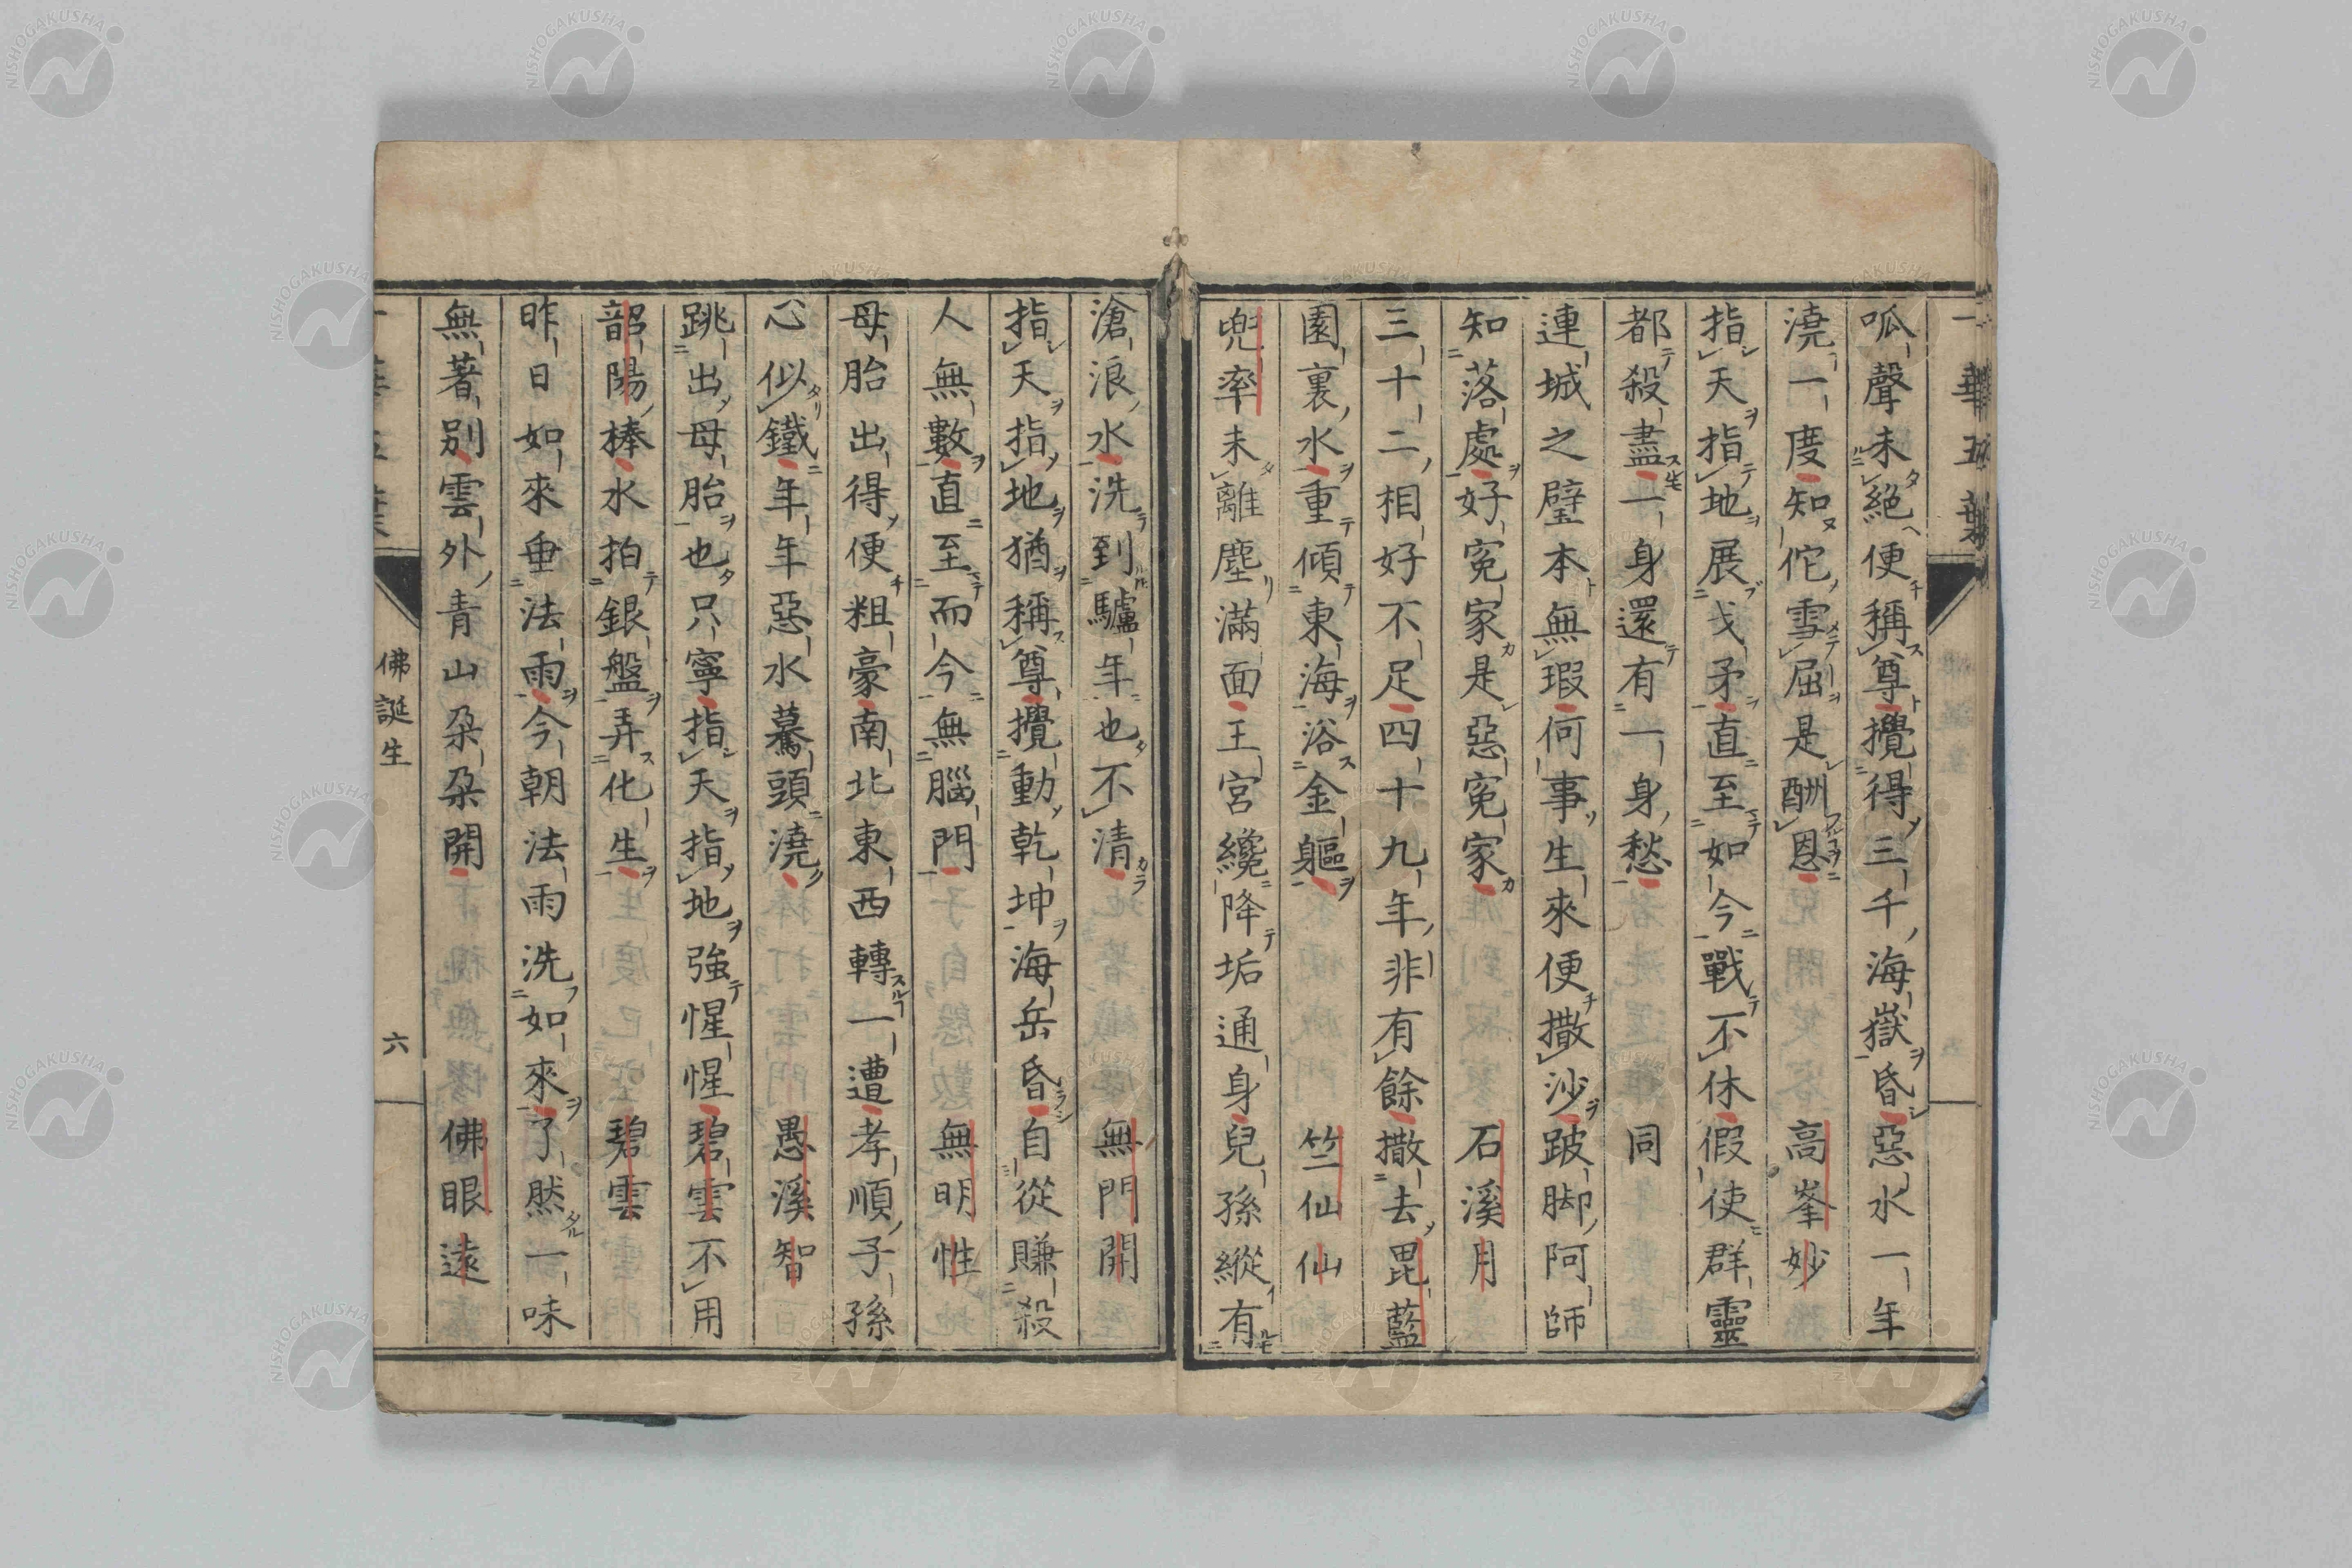 一華五葉
呱聲未絕便稱尊攪得三千海嶽昏惡水一年
澆一度知佗雪屈是酬恩 高峯妙
指天指地展戈矛直至如今戰不休假使群靈
都殺盡一身還有一身愁 同
連城之璧本無瑕何事生來便撒沙跛脚阿師
知落處好寃家是惡寃家 石溪月
三十二相好不足四十九年非有餘撒去毘藍
園裏水重傾東海浴金軀 竺仙仙
兜率未離塵滿面王宮纔降垢通身兒孫縱有
滄浪水洗到驢年也不清 無門開
指天指地猶稱尊攪動乾坤海岳昏自從賺殺
人無數直至而今無腦門 無明性
母胎出得便粗豪南北東西轉一遭孝順子孫
心似鐵年年惡水驀頭澆 愚溪智
跳出母胎也只寧指天指地強惺惺碧雲不用
韶陽棒水拍銀盤弄化生 碧雲
昨日如來垂法雨今朝法雨洗如來了然一味
無著別雲外青山朶朶開 佛眼遠
佛誕生
六